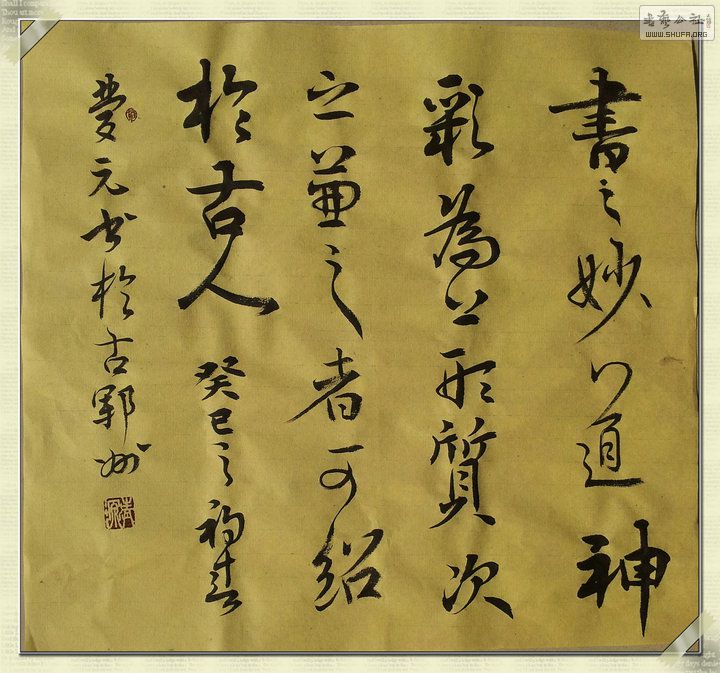 書之妙道神
彩為上形質次
之兼之者可紹
於古人 癸巳之初春
夢元书於古鄆州
書藝公社
WWW.SHUFA.ORG